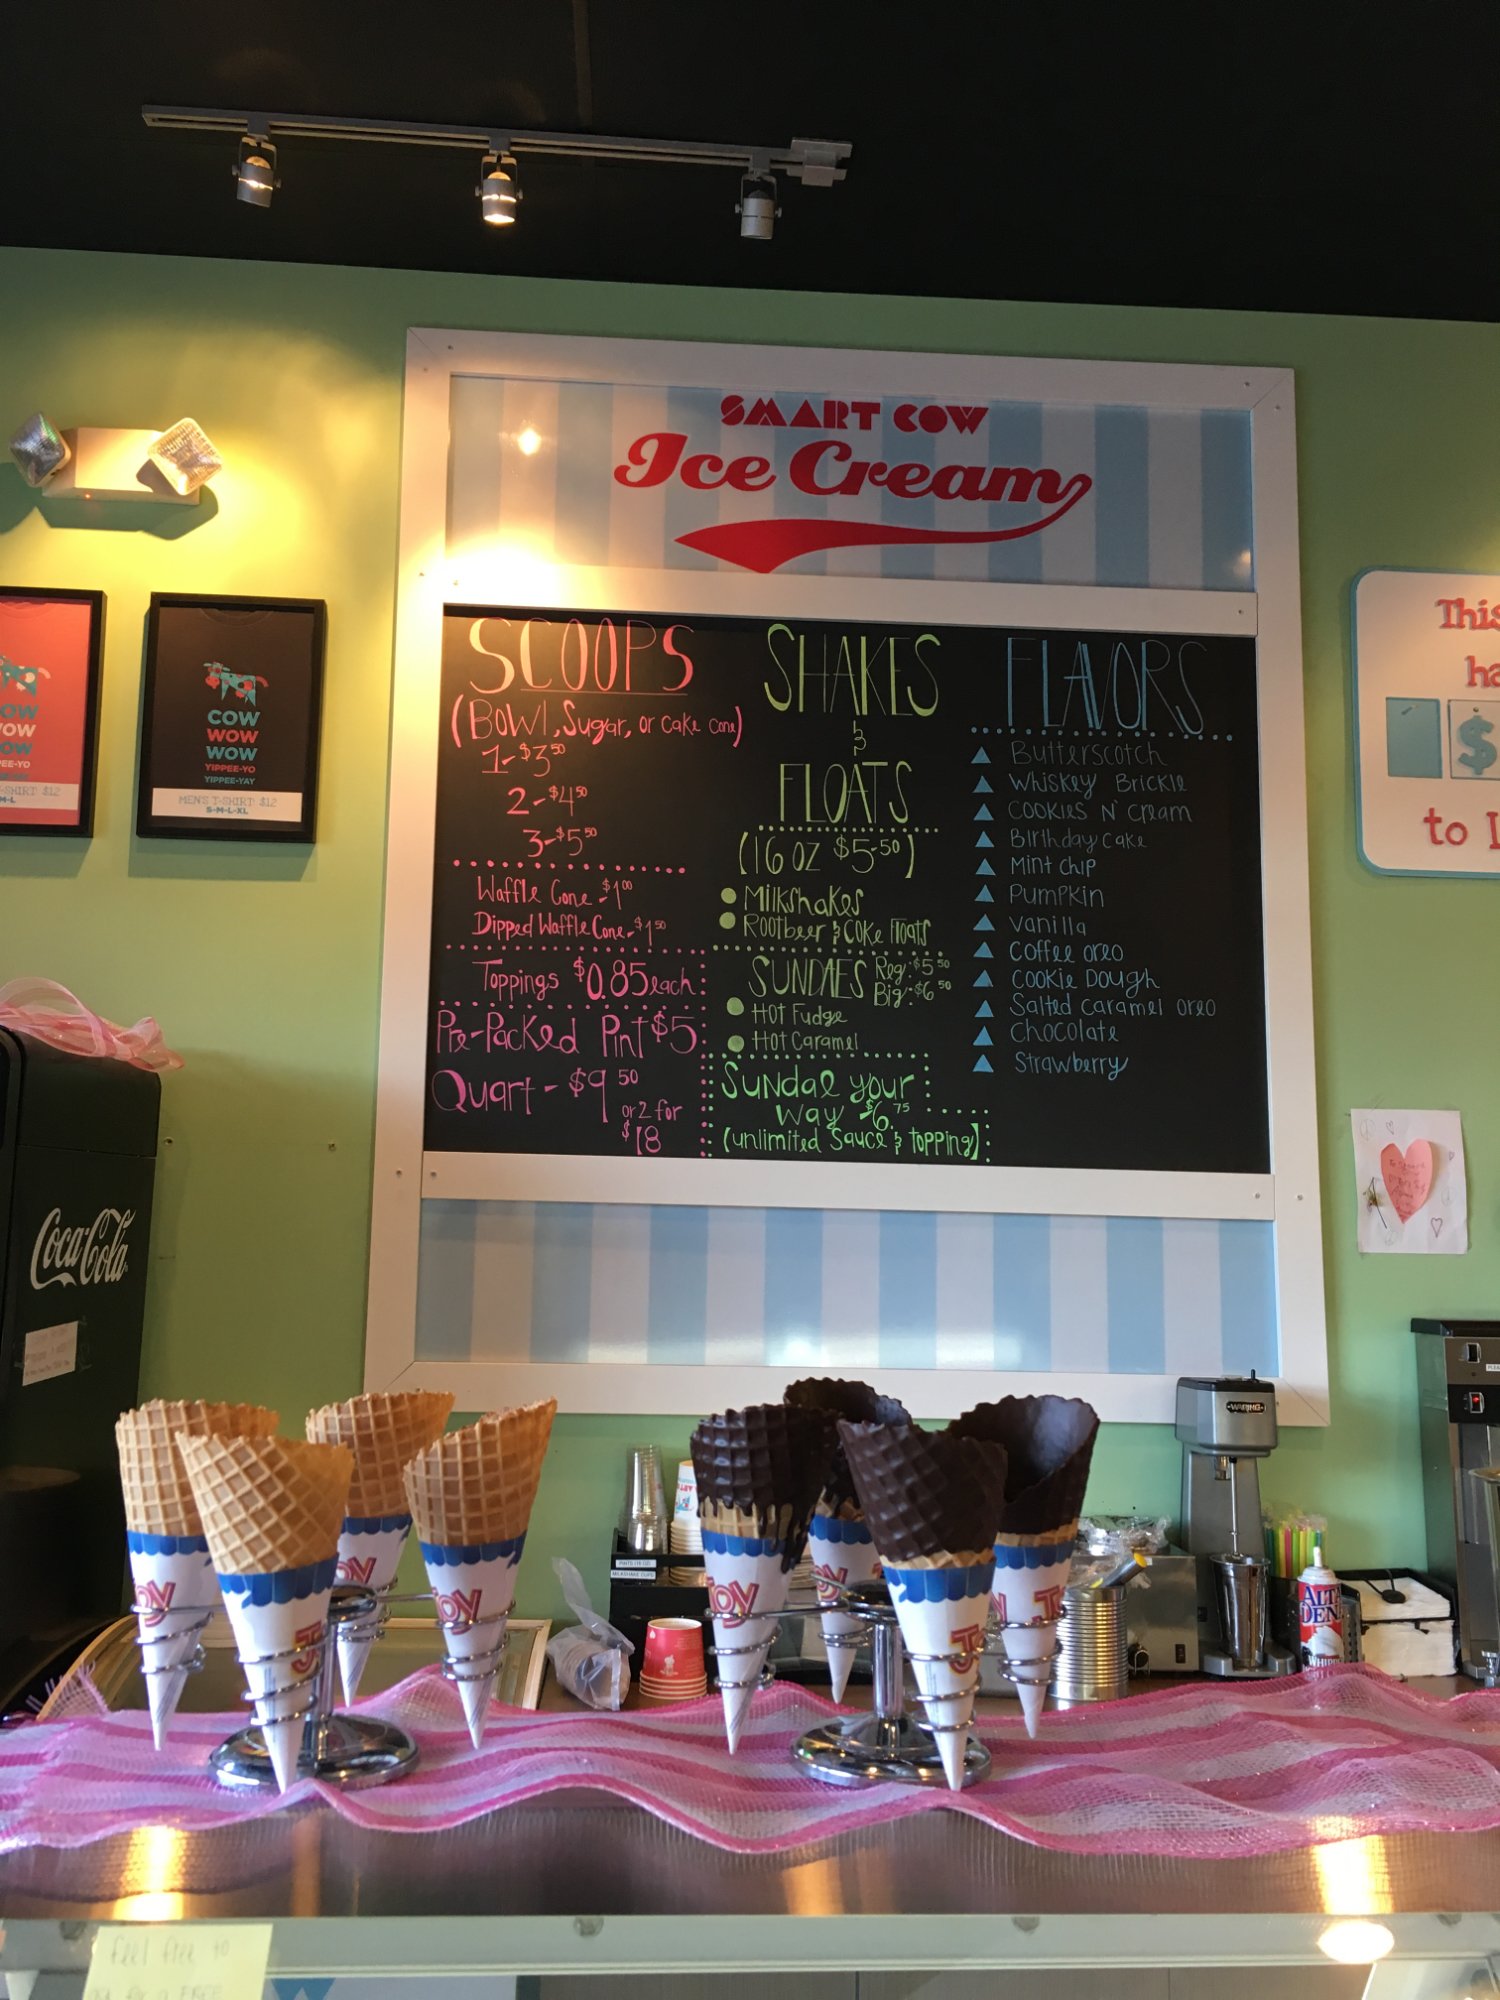 SMART COW
Ice Cream
SCOOPS
(BOWL, Sugar, or cake cone)
1-$3.50
2-$4.50
3-$5.50
Waffle Cone-$1.00
Dipped Waffle Cone-$1.50
Toppings $0.85 each
Pre-Packed Pint $5
Quart-$9.50
or 2 for
$18
SHAKES
&
FLOATS
(16 oz $5.50)
Milkshakes
Rootbeer & Coke Floats
SUNDAES Reg: $5.50
Big: $6.50
Hot Fudge
Hot Caramel
Sundae your
way - $6.75
(unlimited Sauce & topping)
FLAVORS
Butterscotch
Whiskey Brickle
Cookies N' Cream
Birthday Cake
Mint Chip
Pumpkin
Vanilla
Coffee Oreo
Cookie Dough
Salted Caramel Oreo
Chocolate
Strawberry
COW
WOW
WOW
YIPPEE-YO
YIPPEE-YAY
MEN'S T-SHIRT $12
S-M-L-XL
OW
WOW
OW
PEE-YO
-SHIRT $12
M-L
This
ha
$
to
Coca-Cola
WARING
PINTS (16 OZ)
MILKSHAKE CUPS
JOY
JOY
JOY
JOY
ALTA
DENA
WHIPPED
feel free to
FREE